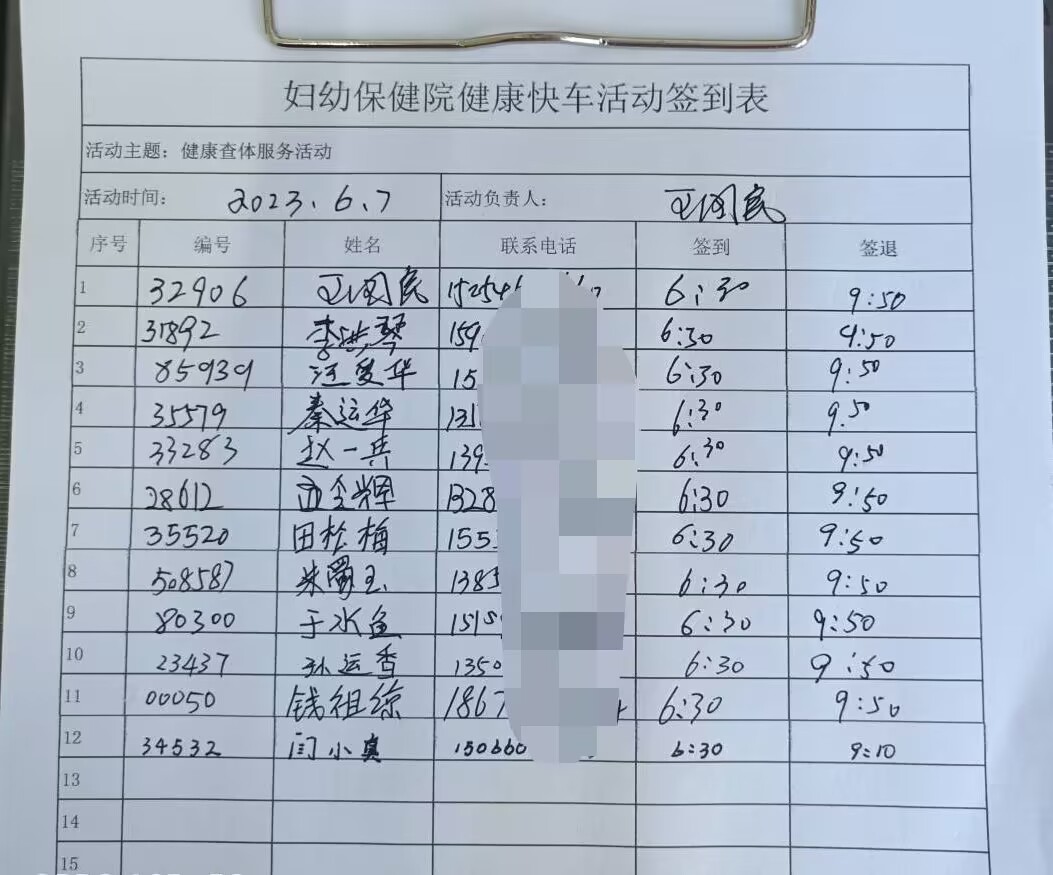 妇幼保健院健康快车活动签到表
活动主题：健康查体服务活动
活动时间： 2023.6.7 活动负责人： 王国民
序号 编号 姓名 联系电话 签到 签退
1 32906 王国民 15254 6:30 9:50
2 31892 李洪琴 159 6:30 9:50
3 85939 汪爱华 15 6:30 9:50
4 35579 秦运华 131 6:30 9.50
5 33283 赵一兵 139 6:30 9:50
6 28612 6:30 9:50
7 35520 田松梅 155 6:30 9:50
8 508587 朱蜀玉 1385 6:30 9:50
9 80300 于水鱼 1515 6:30 9:50
10 23437 孙运香 1350 6:30 9:50
11 00050 钱祖综 1867 6:30 9:50
12 34532 闫小真 150660 6:30 9:10
13
14
15